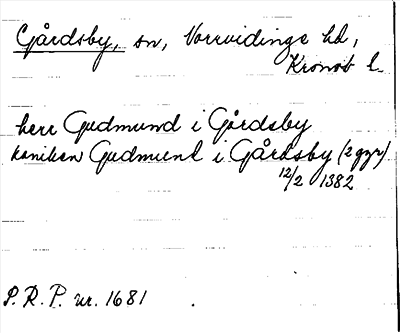 Gårdsby, sn, Norrvidinge hd,
Kronob l.
herr Gudmund i Gårdsby
kaniken Gudmund i Gårdsby (2 ggr)
12/2 1382
P.R.P. nr. 1681